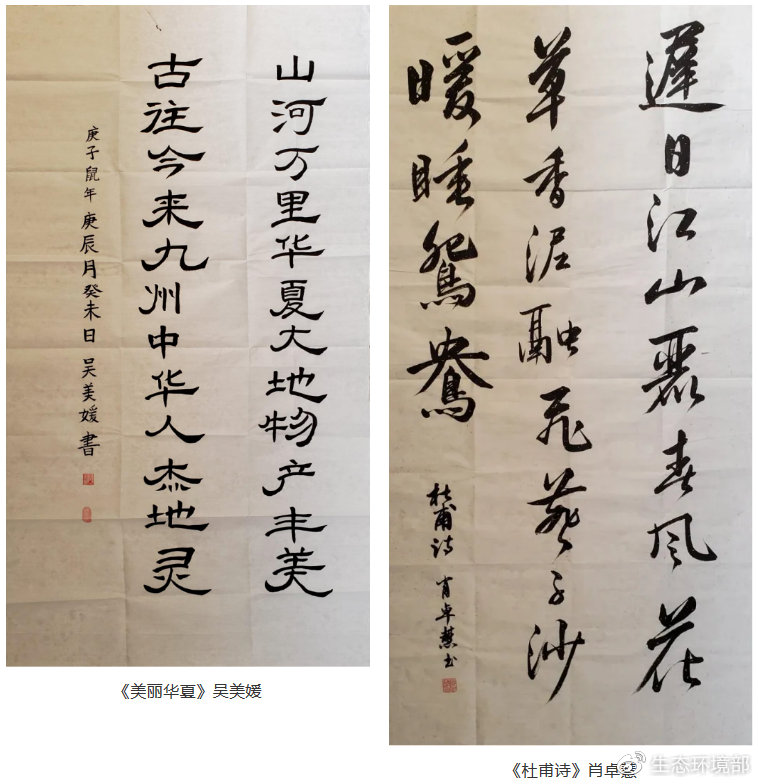 山河万里华夏大地物产丰美
古往今来九州中华人杰地灵
庚子鼠年庚辰月癸未日吴美媛書
《美丽华夏》吴美媛
遲日江山麗春风花
草香泥融飛燕子沙
暖睡鴛鴦
杜甫诗 肖卓慧书
《杜甫诗》肖卓慧
生态环境部